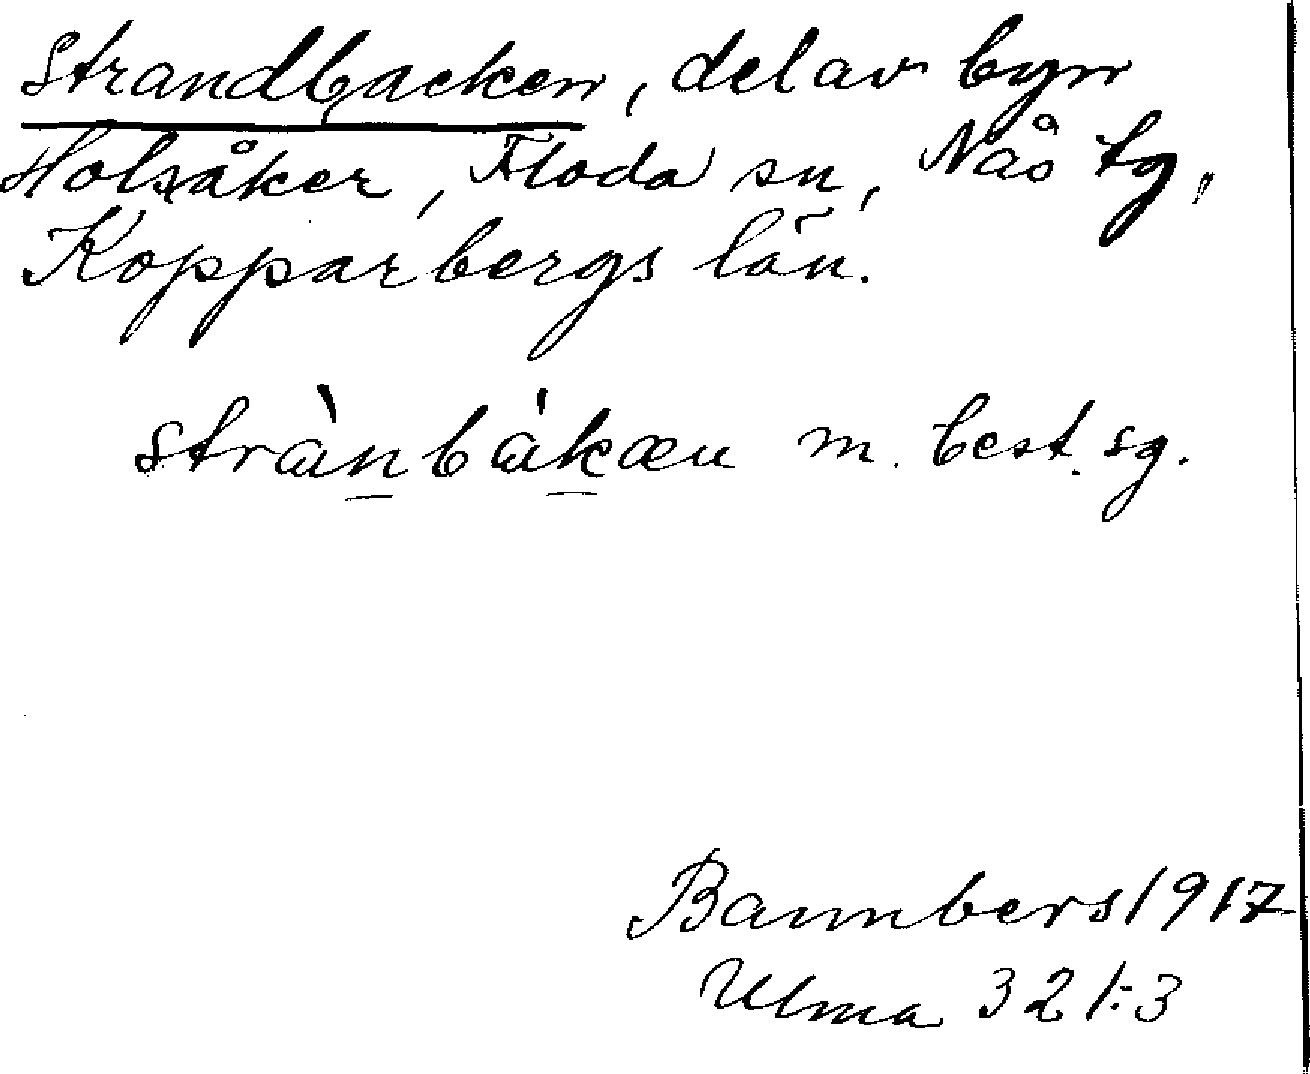 Strandbacken, del av byn
Holsåker, Floda sn, Nås tg,
Kopparbergs län.
strànbákæn m. best. sg.
Bannbers 1917
Ulma 321:3